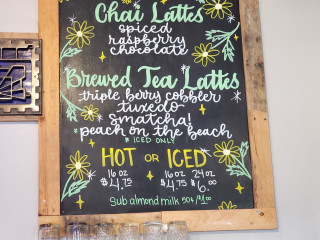 Chai Lattes
spiced
raspberry
chocolate
Brewed Tea Lattes
triple berry cobbler
tuxedo
smatcha!
*peach on the beach
* ICED ONLY
HOT OR ICED
16 oz 16 oz 24 oz
$4.75 $4.75 $6.00
Sub almond milk 50¢/$1.00